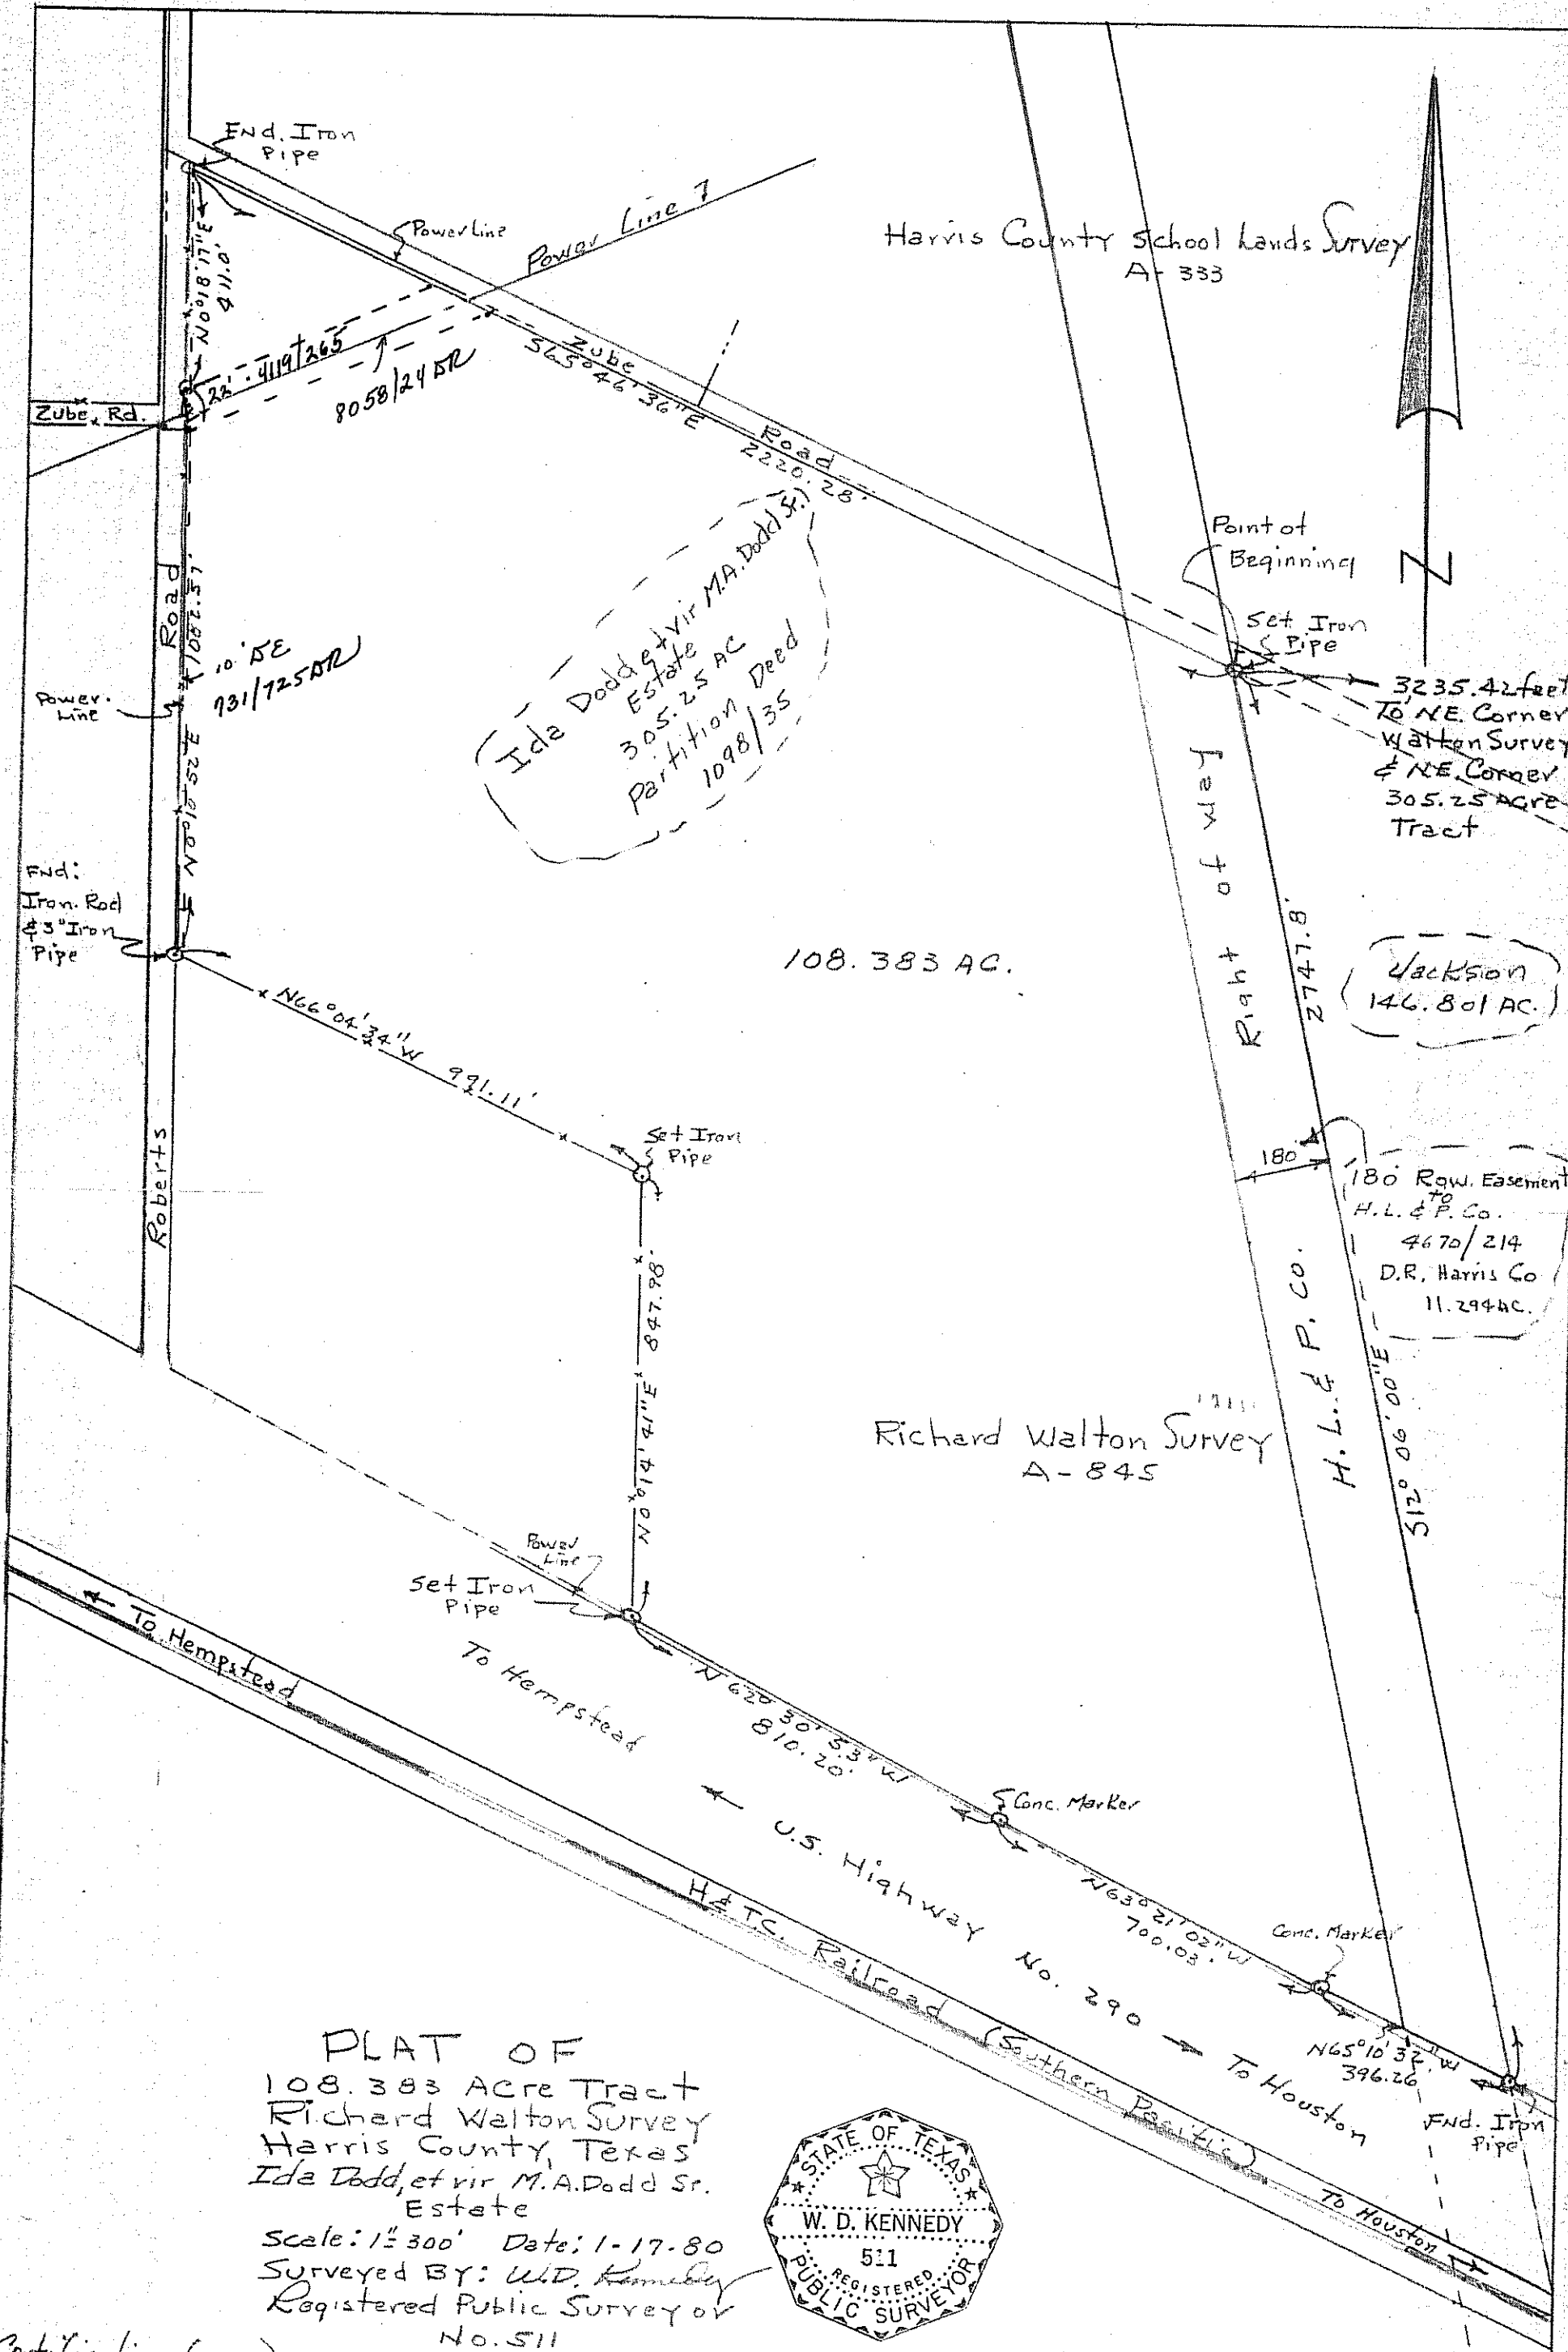 Fnd. Iron
Pipe
Power Line
Power Line
Harris County School Lands Survey
A-333
N0°18'17"E
411.0'
22' - 4119/265
8058/24 DR
Zube Rd.
Zube Road
S65°46'36"E
2220.28'
Point of
Beginning
Set Iron
Pipe
N
3235.42 feet
To N.E. Corner
Walton Survey
& N.E. Corner
305.25 Acre
Tract
Ida Dodd et vir M.A. Dodd Sr.)
Estate
305.25 AC
Partition Deed
1098/35
Road
1082.57'
10' DE
731/725 DR
Power
Line
Fnd:
Iron Rod
& 3" Iron
Pipe
108.383 AC.
Right of way
2747.8'
Jackson
146.801 AC.
N66°04'34"W
991.11'
Set Iron
Pipe
Roberts
180'
180' Row. Easement
to
H.L. & P. Co.
4670/214
D.R. Harris Co
11.294 AC.
847.98'
N0°14'14"E
H.L. & P. Co.
S12°06'00"E
Richard Walton Survey
A-845
Power
Line
Set Iron
Pipe
To Hempstead
To Hempstead
N62°30'53"W
810.20'
Conc. Marker
U.S. Highway No. 290
To Houston
N63°21'02"W
700.03'
Conc. Marker
H & T.C. Railroad (Southern Pacific)
N65°10'32"W
396.26'
Fnd. Iron
Pipe
To Houston
PLAT OF
108.383 Acre Tract
Richard Walton Survey
Harris County, Texas
Ida Dodd, et vir M.A. Dodd Sr.
Estate
Scale: 1"=300' Date: 1-17-80
Surveyed By: W.D. Kennedy
Registered Public Surveyor
No. 511
STATE OF TEXAS
W. D. KENNEDY
511
REGISTERED
PUBLIC SURVEYOR